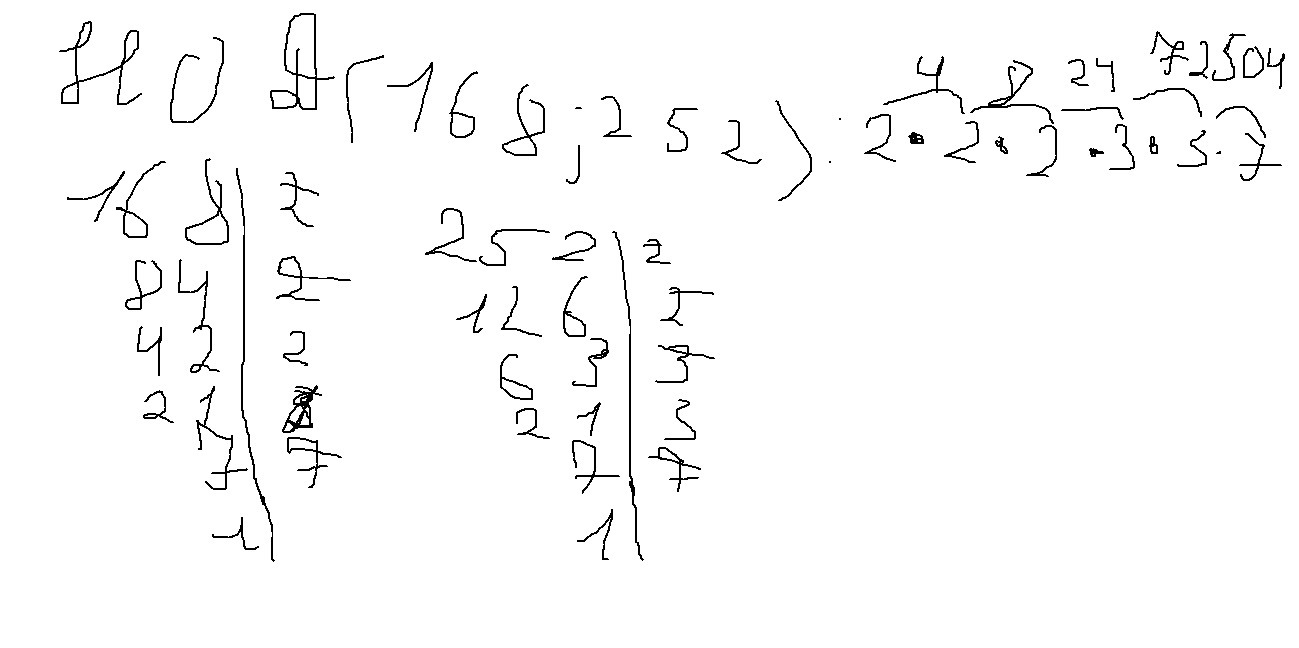 4 8 24 72 504
НОД(168;252): 2·2·2·3·3·7
168 | 2
84 | 2
42 | 2
21 |
7 | 7
1
252 | 2
126 | 2
63 | 3
21 | 3
7 | 7
1